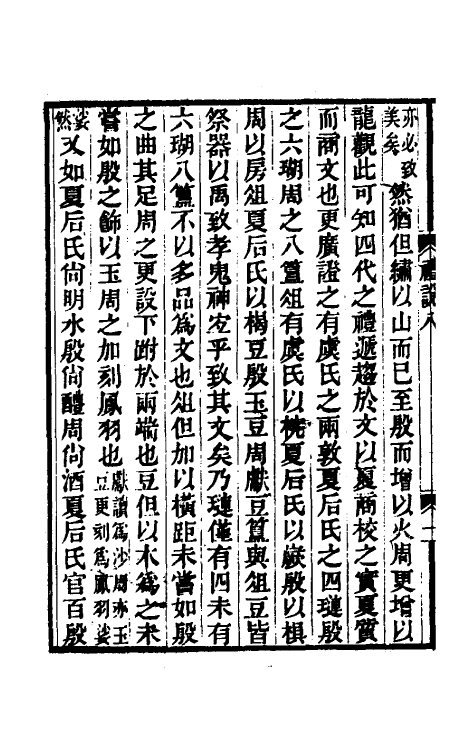 亦必致
美矣然猶但繡以山而已至殷而增以火周更增以
龍觀此可知四代之禮遞趨於文以夏商校之實夏質
而商文也更廣證之有虞氏之兩敦夏后氏之四璉殷
之六瑚周之八簋俎有虞氏以梡夏后氏以嶡殷以椇
周以房俎夏后氏以楬豆殷玉豆周獻豆簋與俎豆皆
祭器以禹致孝鬼神宏乎致其文矣乃璉僅有四未有
六瑚八簋不以多品為文也俎但加以橫距未嘗如殷
之曲其足周之更設下跗於兩端也豆但以木為之未
嘗如殷之飾以玉周之加刻鳳羽也獻讀為沙周亦玉
豆更刻為鳳羽娑
娑
然又如夏后氏尚明水殷尚醴周尚酒夏后氏官百殷
禮說八
二